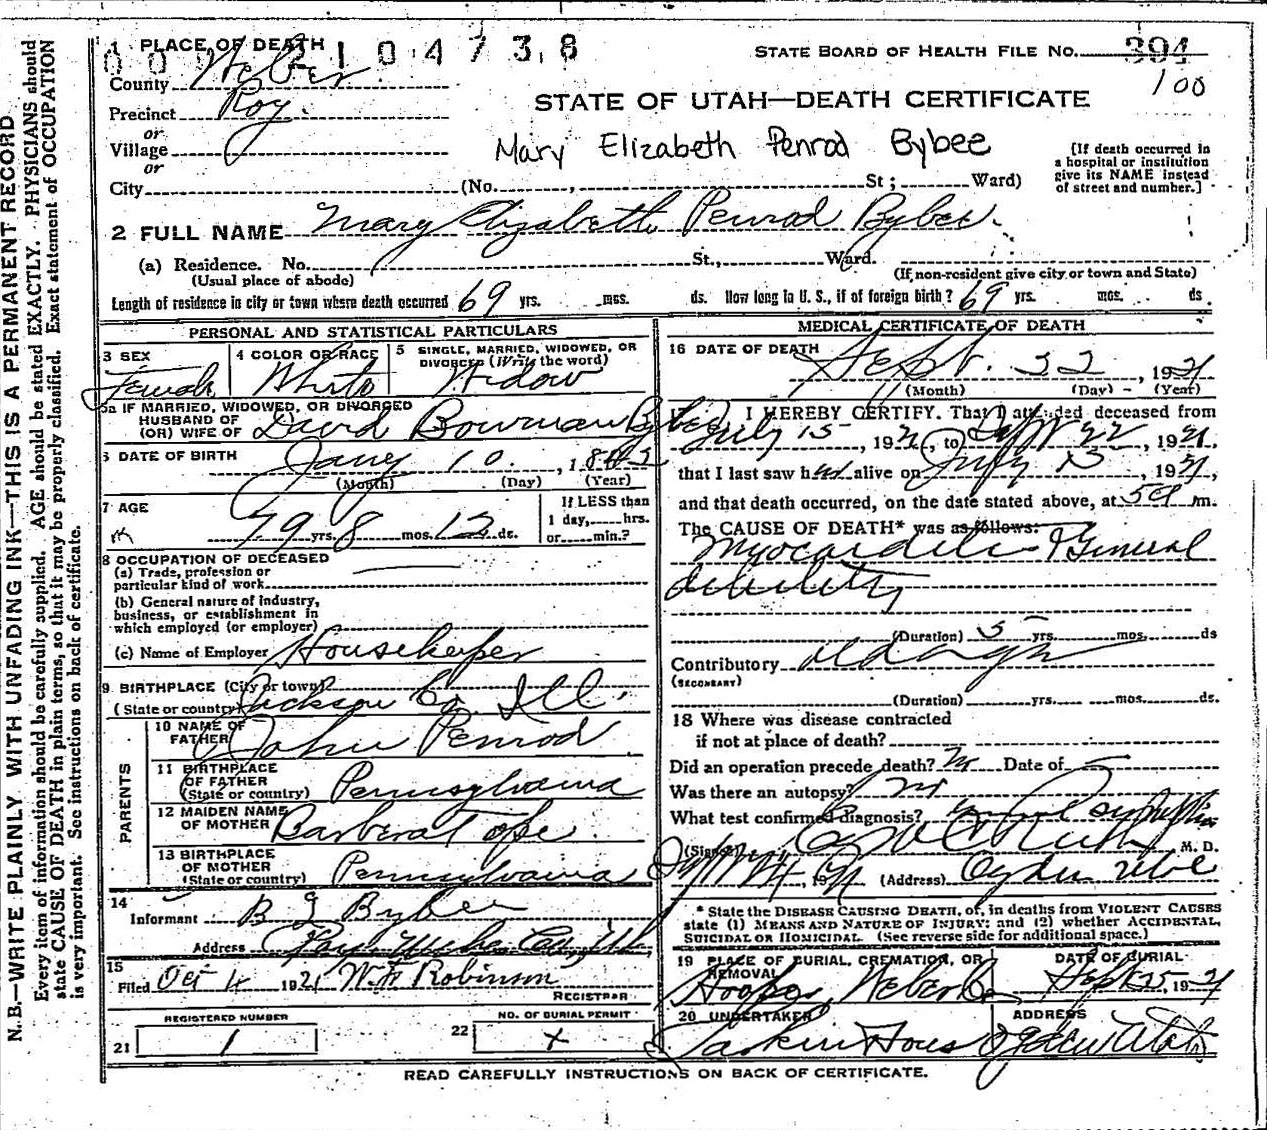 1 PLACE OF DEATH
0 0 9 2 1 0 4 7 3 8
STATE BOARD OF HEALTH FILE NO. 394
100
County Weber
Precinct Roy.
or
Village
or
City (No. , St ; Ward)
STATE OF UTAH—DEATH CERTIFICATE
Mary Elizabeth Penrod Bybee
[If death occurred in a hospital or institution give its NAME instead of street and number.]
2 FULL NAME Mary Elizabeth Penrod Bybee.
(a) Residence. No. St., Ward.
(Usual place of abode)
(If non-resident give city or town and State)
Length of residence in city or town where death occurred 69 yrs. mos. ds. How long in U. S., if of foreign birth? 69 yrs. mos. ds
PERSONAL AND STATISTICAL PARTICULARS
3 SEX
Female
4 COLOR OR RACE
White
5 SINGLE, MARRIED, WIDOWED, OR DIVORCED (Write the word)
Widow
5a IF MARRIED, WIDOWED, OR DIVORCED
HUSBAND OF
(OR) WIFE OF David Bowman Bybee
6 DATE OF BIRTH
Jany 10. , 184
(Month) (Day) (Year)
7 AGE
79 yrs. 8 mos. 12 ds.
If LESS than
1 day, hrs.
or min.?
8 OCCUPATION OF DECEASED
(a) Trade, profession or
particular kind of work
(b) General nature of industry,
business, or establishment in
which employed (or employer)
(c) Name of Employer Housekeeper
9 BIRTHPLACE (City or town)
(State or country) Jackson Co. Ill.
PARENTS
10 NAME OF
FATHER John Penrod
11 BIRTHPLACE
OF FATHER
(State or country) Pennsylvania
12 MAIDEN NAME
OF MOTHER Barbera Tope
13 BIRTHPLACE
OF MOTHER
(State or country) Pennsylvania
14
Informant B L Bybee
Address Roy, Weber Co, Ut.
15
Filed Oct 4 1921 W. F. Robinson
REGISTRAR
REGISTERED NUMBER
21 1
NO. OF BURIAL PERMIT
22 x
MEDICAL CERTIFICATE OF DEATH
16 DATE OF DEATH
Sept. 22 , 1921
(Month) (Day) (Year)
17 I HEREBY CERTIFY. That I attended deceased from
July 15 , 1921, to Sept 22 , 1921.
that I last saw her alive on July 15 , 1921,
and that death occurred, on the date stated above, at 5 a m.
The CAUSE OF DEATH* was as follows:
Myocarditis & General
debility
(Duration) 5 yrs. mos. ds
Contributory old age
(SECONDARY)
(Duration) yrs. mos. ds.
18 Where was disease contracted
if not at place of death?
Did an operation precede death? no Date of
Was there an autopsy? no
What test confirmed diagnosis?
(Signed) M. D.
1921 (Address) Ogden Utah
* State the DISEASE CAUSING DEATH, or, in deaths from VIOLENT CAUSES
state (1) MEANS AND NATURE OF INJURY; and (2) whether ACCIDENTAL,
SUICIDAL OR HOMICIDAL. (See reverse side for additional space.)
19 PLACE OF BURIAL, CREMATION, OR
REMOVAL
Hooper, Weber Co
DATE OF BURIAL
Sept 25, 1921
20 UNDERTAKER
Larkin & Sons
ADDRESS
Ogden Utah
READ CAREFULLY INSTRUCTIONS ON BACK OF CERTIFICATE.
N. B.—WRITE PLAINLY WITH UNFADING INK—THIS IS A PERMANENT RECORD.
Every item of information should be carefully supplied. AGE should be stated EXACTLY. PHYSICIANS should
state CAUSE OF DEATH in plain terms, so that it may be properly classified. Exact statement of OCCUPATION
is very important. See instructions on back of certificate.